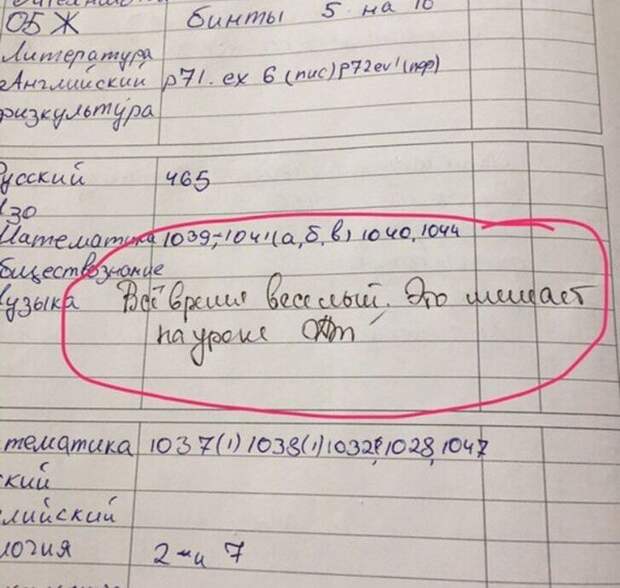 ОБЖ бинты 5 на 10
Литература
Английский p71. ex 6 (пис) p72 ex1 (пер)
физкультура
усский 465
ИЗО
Математика 1039, 1041 (а, б, в) 1040, 1044
бществознание
узыка Всё время веселый. Это мешает
на уроке
тематика 1037(1) 1038(1) 1032, 1028, 1047
ский
лийский
логия 2 7